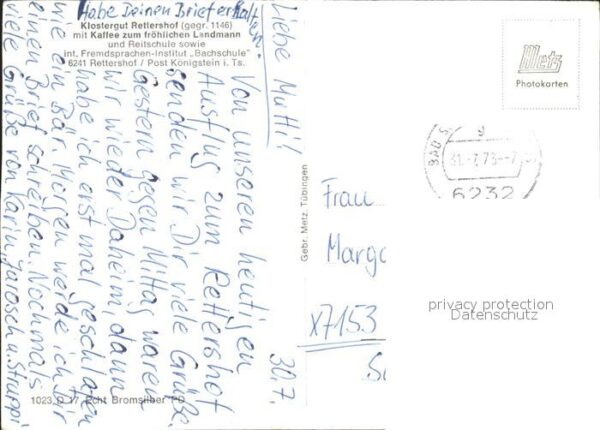 Habe Deinen Brief erhalten.
Klostergut Rettershof (gegr. 1146)
mit Kaffee zum fröhlichen Landmann
und Reitschule sowie
int. Fremdsprachen-Institut „Bachschule"
6241 Rettershof / Post Königstein i. Ts.
30.7.
Liebe Mutti!
Von unseren heutigen
Ausflug zum Rettershof
senden wir Dir viele Grüße.
Gestern gegen Mittag waren
wir wieder Daheim, dann
habe ich erst mal geschlafen
wie ein Bär. Morgen werde ich Dir
einen Brief schreiben. Nochmals
viele Grüße von Karin, Jarosch u. Struppi
1023 D 17 Echt Bromsilber
Gebr. Metz, Tübingen
Metz
Photokarten
BAD S
31.-7.73--7
6232
Frau
Marga
X7153
privacy protection
Datenschutz